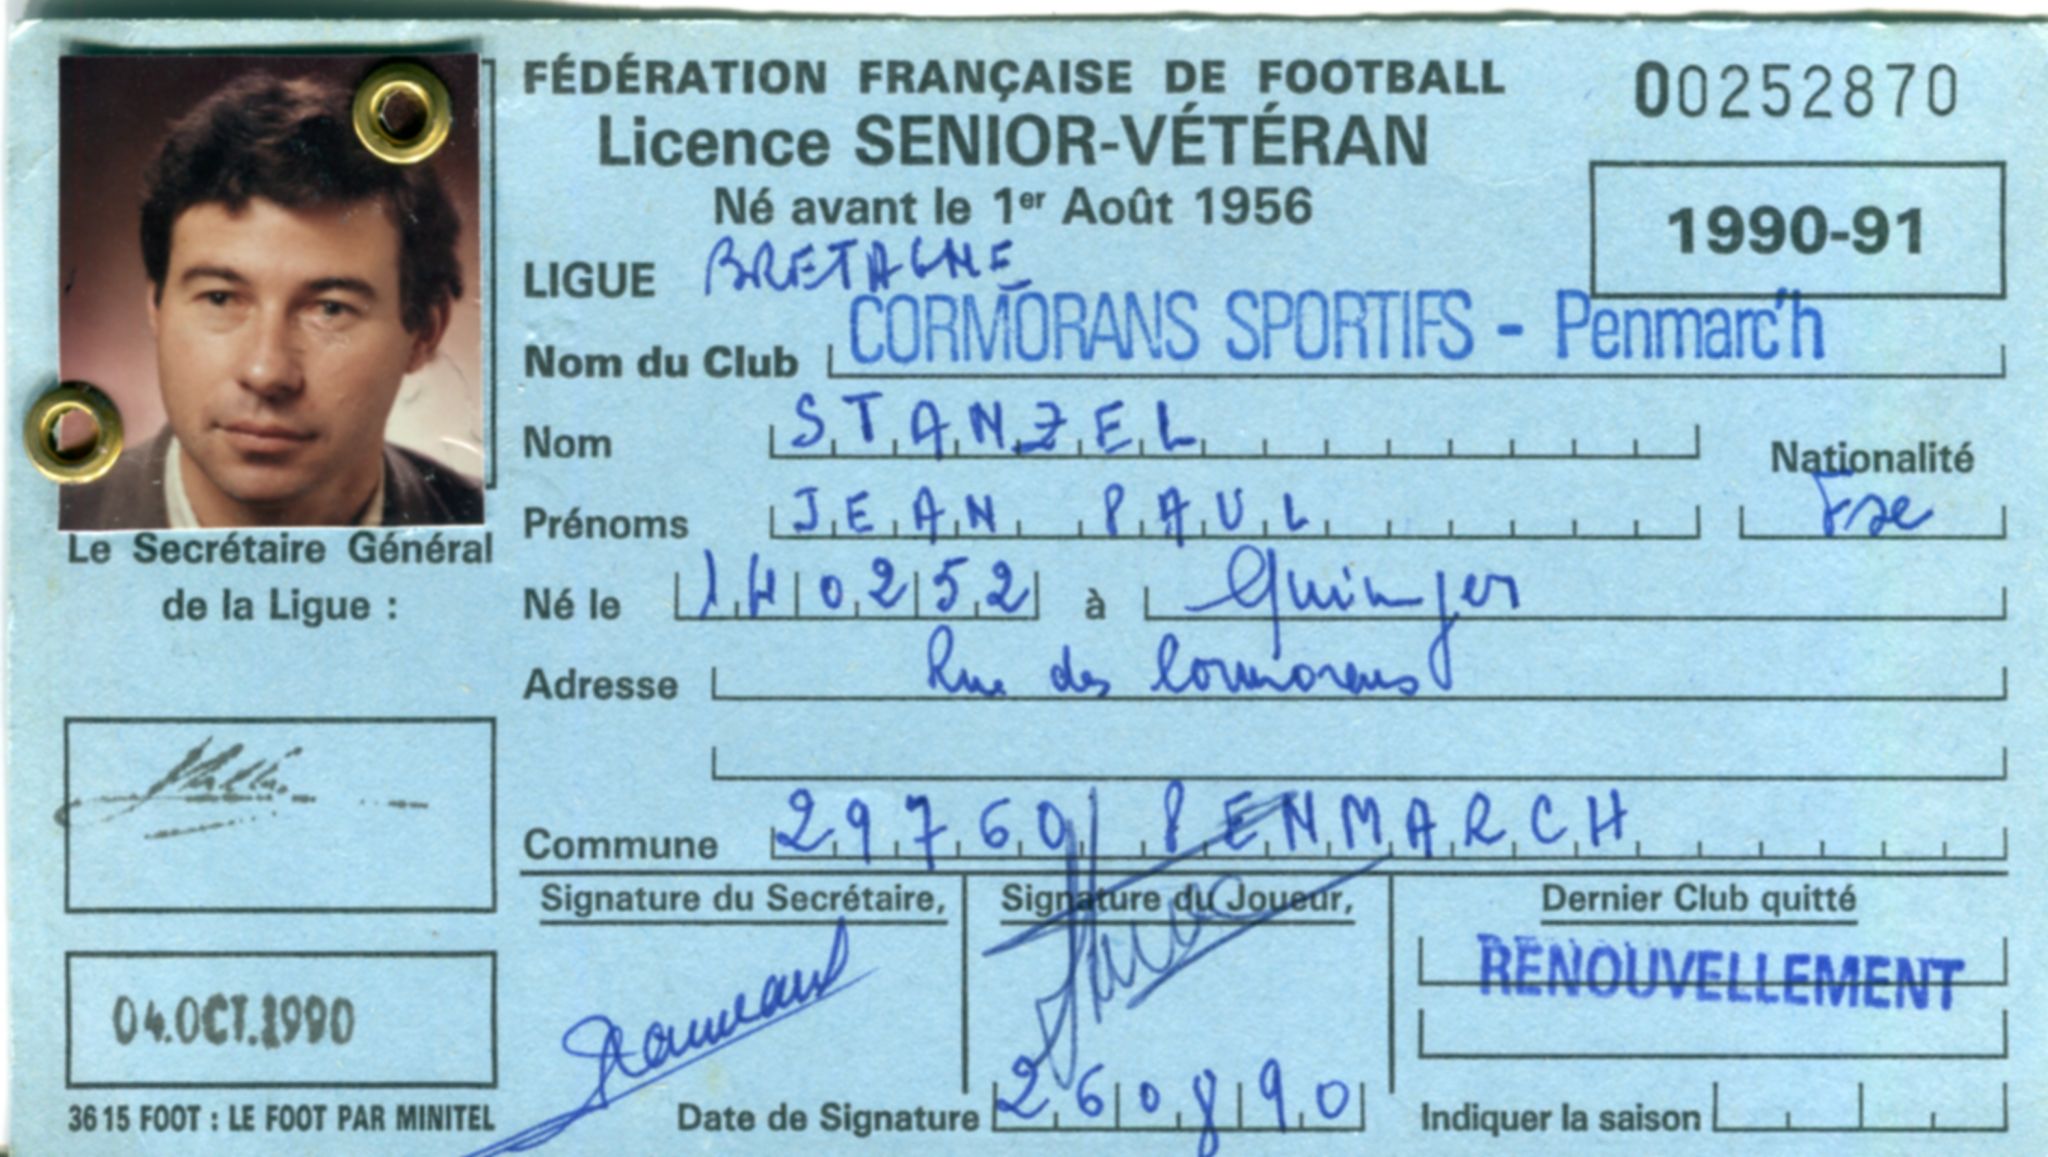 FÉDÉRATION FRANÇAISE DE FOOTBALL
00252870
Licence SENIOR-VÉTÉRAN
Né avant le 1er Août 1956
1990-91
LIGUE BRETAGNE
Nom du Club CORMORANS SPORTIFS - Penmarc'h
Nom STANZEL
Nationalité
Prénoms JEAN PAUL
Fse
Le Secrétaire Général
de la Ligue :
Né le 140252 à Quimper
Adresse Rue des Cormorans
Commune 29760 PENMARCH
Signature du Secrétaire,
Signature du Joueur,
Dernier Club quitté
RENOUVELLEMENT
04.OCT.1990
3615 FOOT : LE FOOT PAR MINITEL
Date de Signature 260890
Indiquer la saison